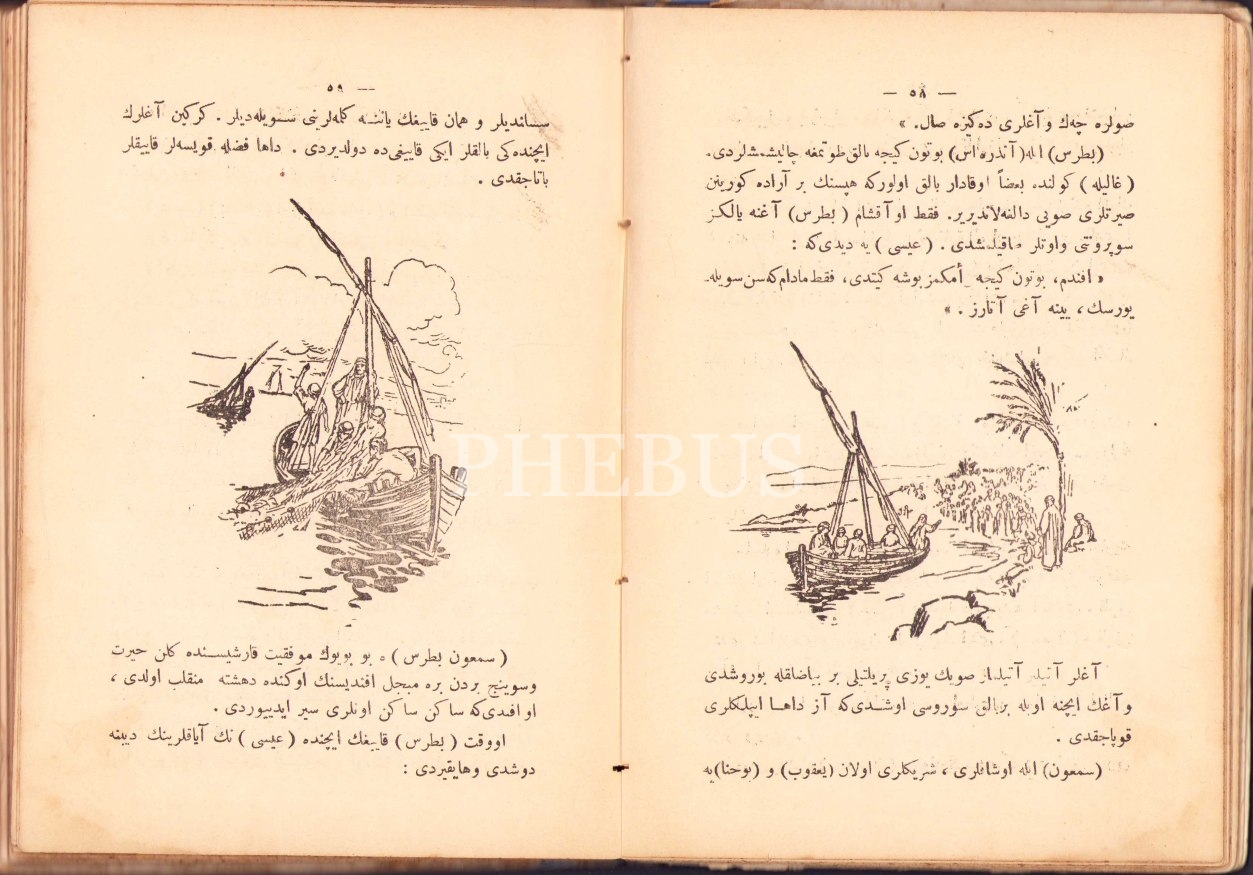 — ٥٨ —
صولره چەك و آغلری دەكیزە صال. »
(بطرس) ایله (آندرەآس) بوتون كیجه بالق طوتمغه چالیشمشلردی.
(غالیله) كولنده بعضاً اوقادار بالق اولوركه هپسنك بر آراده كورینن
صیرتلری صویی دالغەلاندیریر. فقط اوآقشام (بطرس) آغنه یالكز
سوپرونتی واوتلر طاقیلمشدی. (عیسی) یه دیدی كه :
« افندم، بوتون كیجه أمكمز بوشه كیتدی، فقط مادام كه سن سویله‌
یورسك، یینه آغی آتارز. »
آغلر آتیلیر آتیلماز صویك یوزی پریلتیلی بر بیاضلقله بوروشدی
و آغك ایچنه اویله بر بالق سوروسی اوشدی كه آز داها ایپلكلری
قوپاجقدی.
(سمعون) ایله اوشاقلری، شریكلری اولان (یعقوب) و (یوحنا) یه
— ٥٩ —
سسلندیلر و همان قاییغك یاننه كلملرینی سویله‌دیلر. كركین آغلرك
ایچنده‌كی بالقلر ایكی قاییغی ده دولدیردی. داها فضله قویسه‌لر قاییقلر
باتاجقدی.
PHEBUS
(سمعون بطرس) ه بو بویوك موفقیت قارشیسنده كلن حیرت
وسوینج بردن بره مبجل افندیسنك اوكنده دهشته منقلب اولدی،
او افندی كه ساكن ساكن اونلری سیر ایدییوردی.
اووقت (بطرس) قاییغك ایچنده (عیسی) نك آیاقلرینك دیبنه
دوشدی وهایقیردی :